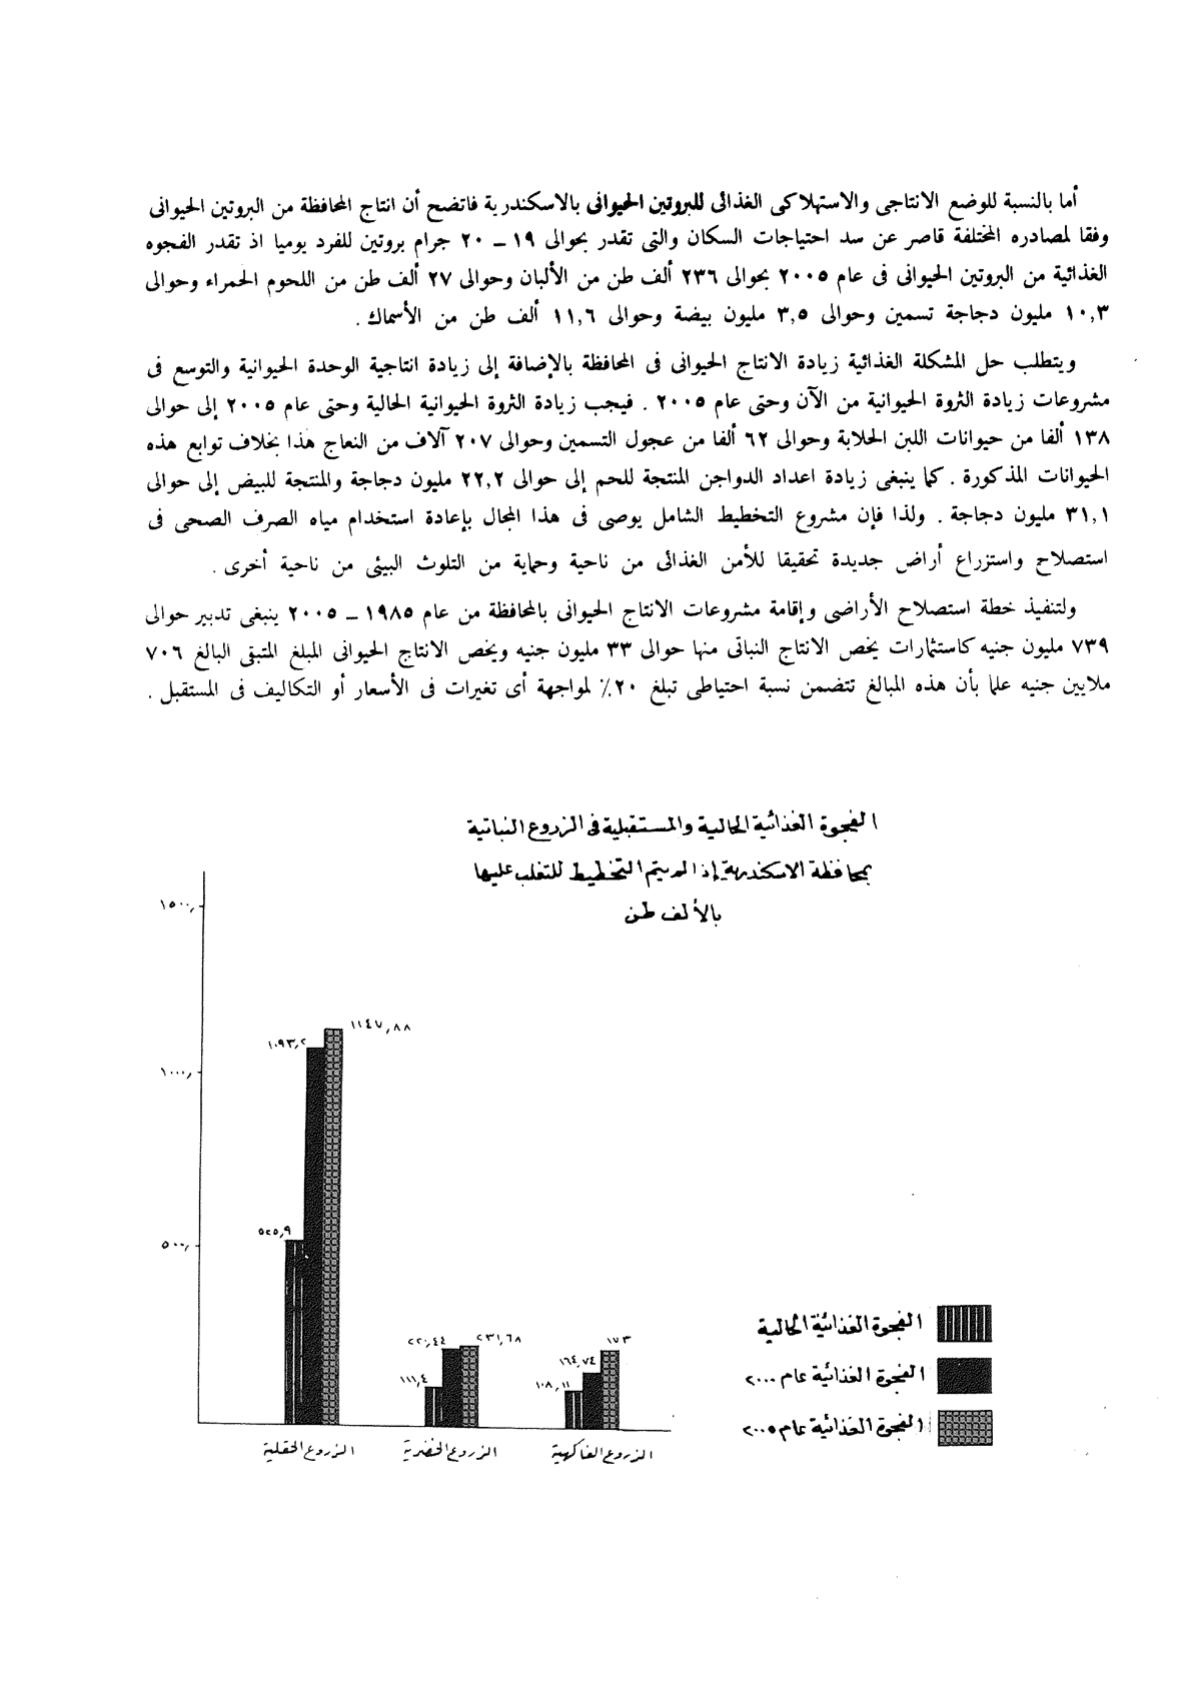 أما بالنسبة للوضع الانتاجى والاستهلاكى الغذائى للبروتين الحيوانى بالاسكندرية فاتضح أن انتاج المحافظة من البروتين الحيوانى
وفقا لمصادره المختلفة قاصر عن سد احتياجات السكان والتى تقدر بحوالى ١٩ – ٢٠ جرام بروتين للفرد يوميا اذ تقدر الفجوه
الغذائية من البروتين الحيوانى فى عام ٢٠٠٥ بحوالى ٢٣٦ ألف طن من الألبان وحوالى ٢٧ ألف طن من اللحوم الحمراء وحوالى
١٠,٣ مليون دجاجة تسمين وحوالى ٣,٥ مليون بيضة وحوالى ١١,٦ ألف طن من الأسماك .
ويتطلب حل المشكلة الغذائية زيادة الانتاج الحيوانى فى المحافظة بالإضافة إلى زيادة انتاجية الوحدة الحيوانية والتوسع فى
مشروعات زيادة الثروة الحيوانية من الآن وحتى عام ٢٠٠٥ . فيجب زيادة الثروة الحيوانية الحالية وحتى عام ٢٠٠٥ إلى حوالى
١٣٨ ألفا من حيوانات اللبن الحلابة وحوالى ٦٢ ألفا من عجول التسمين وحوالى ٢٠٧ آلاف من النعاج هذا بخلاف توابع هذه
الحيوانات المذكورة . كما ينبغى زيادة اعداد الدواجن المنتجة للحم إلى حوالى ٢٢,٢ مليون دجاجة والمنتجة للبيض إلى حوالى
٣١,١ مليون دجاجة . ولذا فإن مشروع التخطيط الشامل يوصى فى هذا المجال بإعادة استخدام مياه الصرف الصحى فى
استصلاح واستزراع أراض جديدة تحقيقا للأمن الغذائى من ناحية وحماية من التلوث البيئى من ناحية أخرى .
ولتنفيذ خطة استصلاح الأراضى وإقامة مشروعات الانتاج الحيوانى بالمحافظة من عام ١٩٨٥ – ٢٠٠٥ ينبغى تدبير حوالى
٧٣٩ مليون جنيه كاستثمارات يخص الانتاج النباتى منها حوالى ٣٣ مليون جنيه ويخص الانتاج الحيوانى المبلغ المتبقى البالغ ٧٠٦
ملايين جنيه علما بأن هذه المبالغ تتضمن نسبة احتياطى تبلغ ٢٠٪ لمواجهة أى تغيرات فى الأسعار أو التكاليف فى المستقبل .
الفجوة الغذائية الحالية والمستقبلية فى الزروع النباتية
بمحافظة الاسكندرية إذا لم يتم التخطيط للتغلب عليها
بالألف طن
١٥٠٠,
١٠٠٠,
٥٠٠,
٥٢٥,٩
١٠٩٣,٢
١١٤٧,٨٨
١١١,٤
٢٢٠,٤٤
٢٣١,٦٨
١٠٨,١١
١٦٤,٧٤
١٧٣
الزروع الحقلية
الزروع الخضرية
الزروع الفاكهية
الفجوة الغذائية الحالية
الفجوة الغذائية عام ٢٠٠٠
الفجوة الغذائية عام ٢٠٠٥